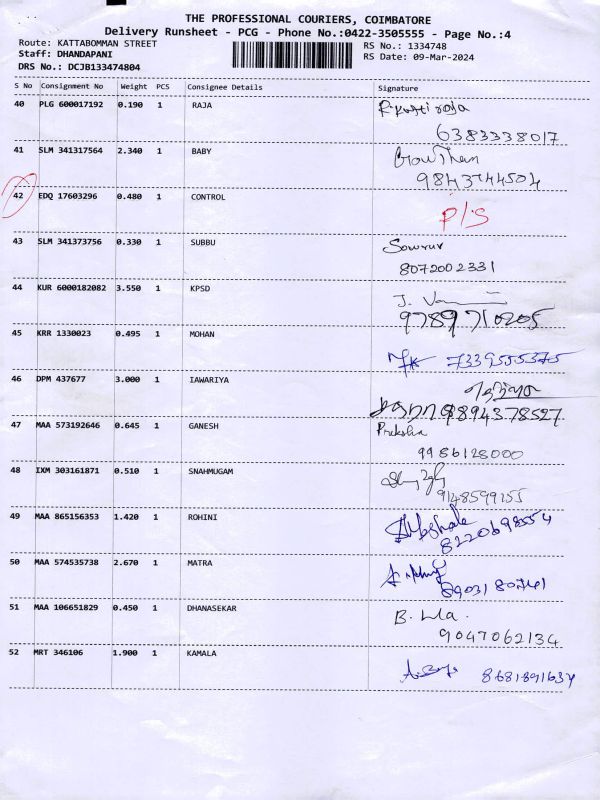 THE PROFESSIONAL COURIERS, COIMBATORE
Delivery Runsheet - PCG - Phone No.:0422-3505555 - Page No.:4
Route: KATTABOMMAN STREET RS No.: 1334748
Staff: DHANDAPANI RS Date: 09-Mar-2024
DRS No.: DCJB133474804
S No Consignment No Weight PCS Consignee Details Signature
40 PLG 600017192 0.190 1 RAJA
6383338017
41 SLM 341317564 2.340 1 BABY Gowtham
9843744504
42 EDQ 17603296 0.480 1 CONTROL P/S
43 SLM 341373756 0.330 1 SUBBU
8072002331
44 KUR 6000182082 3.550 1 KPSD
9789710205
45 KRR 1330023 0.495 1 MOHAN 7339555375
46 DPM 437677 3.000 1 IAWARIYA
9894378527
47 MAA 573192646 0.645 1 GANESH
9986128000
48 IXM 303161871 0.510 1 SNAHMUGAM
9148599255
49 MAA 865156353 1.420 1 ROHINI
8220698554
50 MAA 574535738 2.670 1 MATRA
51 MAA 106651829 0.450 1 DHANASEKAR
9047062134
52 MRT 346106 1.900 1 KAMALA 8681891634